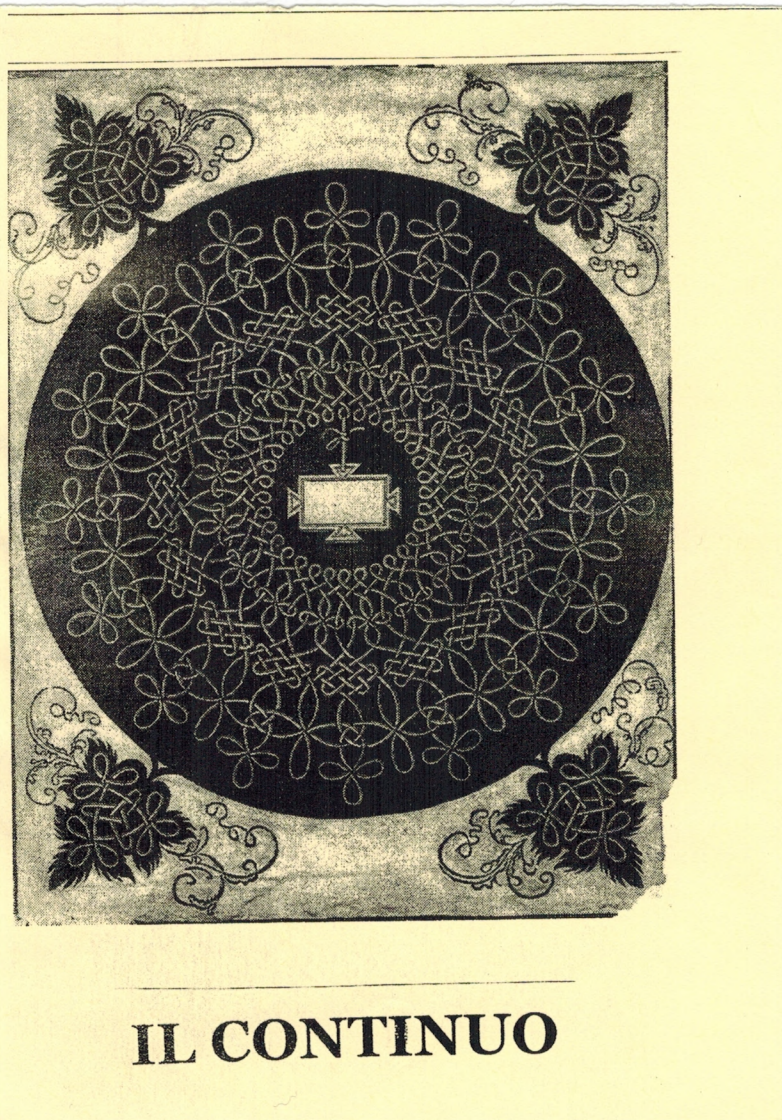 IL CONTINUO